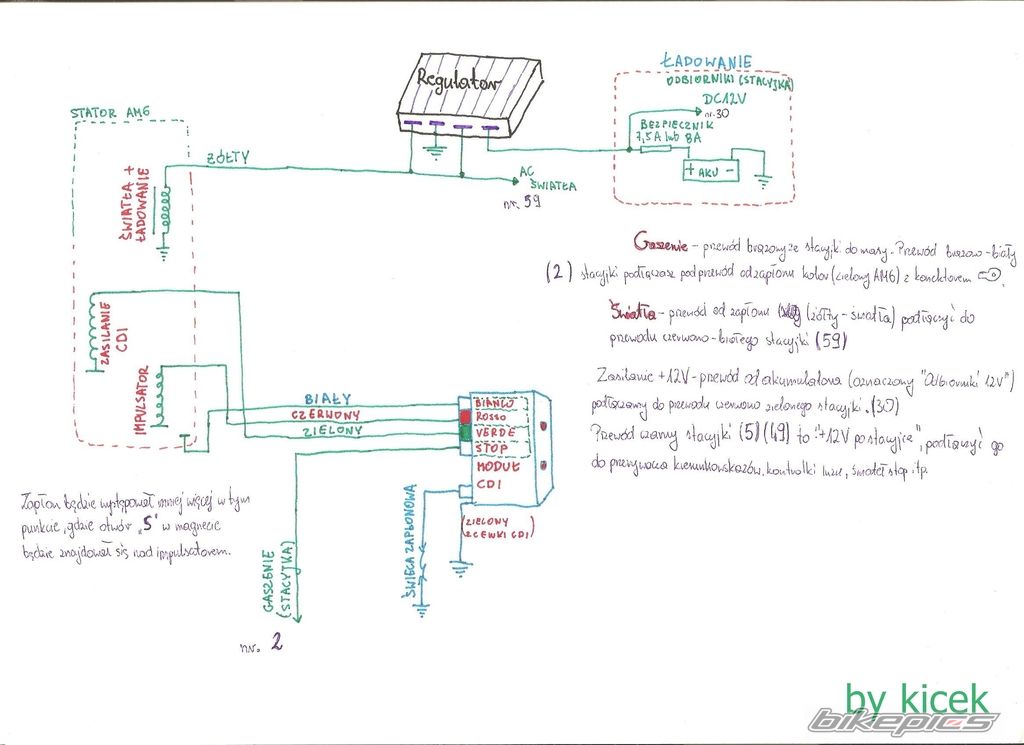 ŁADOWANIE
ODBIORNIKI (STACYJKA)
Regulator
DC12V
nr. 30
BEZPIECZNIK
7,5A lub 8A
+ AKU -
STATOR AM6
ŻÓŁTY
AC
ŚWIATŁA
nr. 59
ŚWIATŁA +
ŁADOWANIE
Gaszenie - przewód brązowy ze stacyjki do masy. Przewód brązowo-biały
(2) stacyjki podłączasz pod przewód od zapłonu kolor (zielony AM6) z konektorem
Światła - przewód od zapłonu (żółty - światła) podłączyć do
przewodu czerwono-białego stacyjki (59)
ZASILANIE
CDI
IMPULSATOR
Zasilanie +12V - przewód od akumulatora (oznaczony "Odbiorniki 12V")
podłączamy do przewodu czerwono zielonego stacyjki. (30)
Przewód czarny stacyjki (5) (49) to "+12V po stacyjce", podłączyć go
do przerywacza kierunkowskazów, kontrolki luzu, świateł stop itp.
BIAŁY
CZERWONY
ZIELONY
BIANCO
ROSSO
VERDE
STOP
MODUŁ
CDI
(ZIELONY
Z CEWKI CDI)
Zapłon będzie występował mniej więcej w tym
punkcie, gdzie otwór "S" w magnecie
będzie znajdował się nad impulsatorem.
GASZENIE
(STACYJKA)
ŚWIECA ZAPŁONOWA
nr. 2
by kicek
bikepics